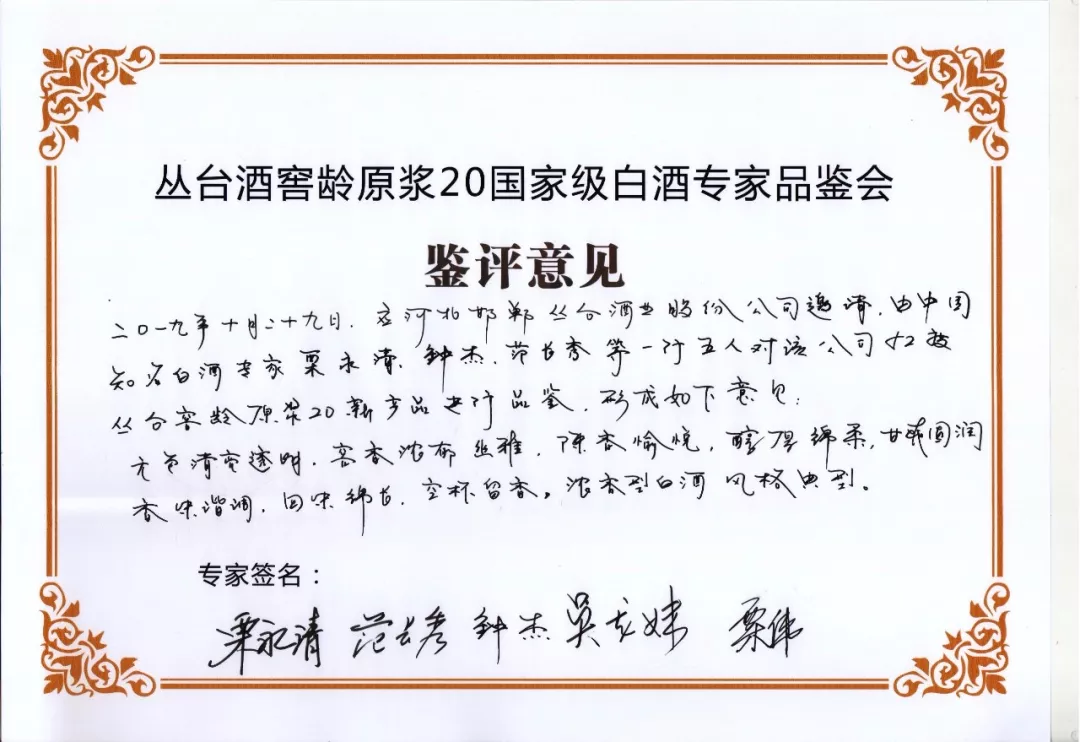 丛台酒窖龄原浆20国家级白酒专家品鉴会
鉴评意见
二〇一九年十月二十九日,应河北邯郸丛台酒业股份公司邀请,由中国
知名白酒专家栗永清、钟杰、范长秀等一行五人对该公司
丛台窖龄原浆20新产品进行品鉴,形成如下意见:
无色清亮透明,窖香浓郁幽雅,陈香愉悦,醇厚绵柔,甘冽圆润
香味谐调,回味绵长,空杯留香。浓香型白酒风格典型。
专家签名:
栗永清 范长秀 钟杰 栗伟